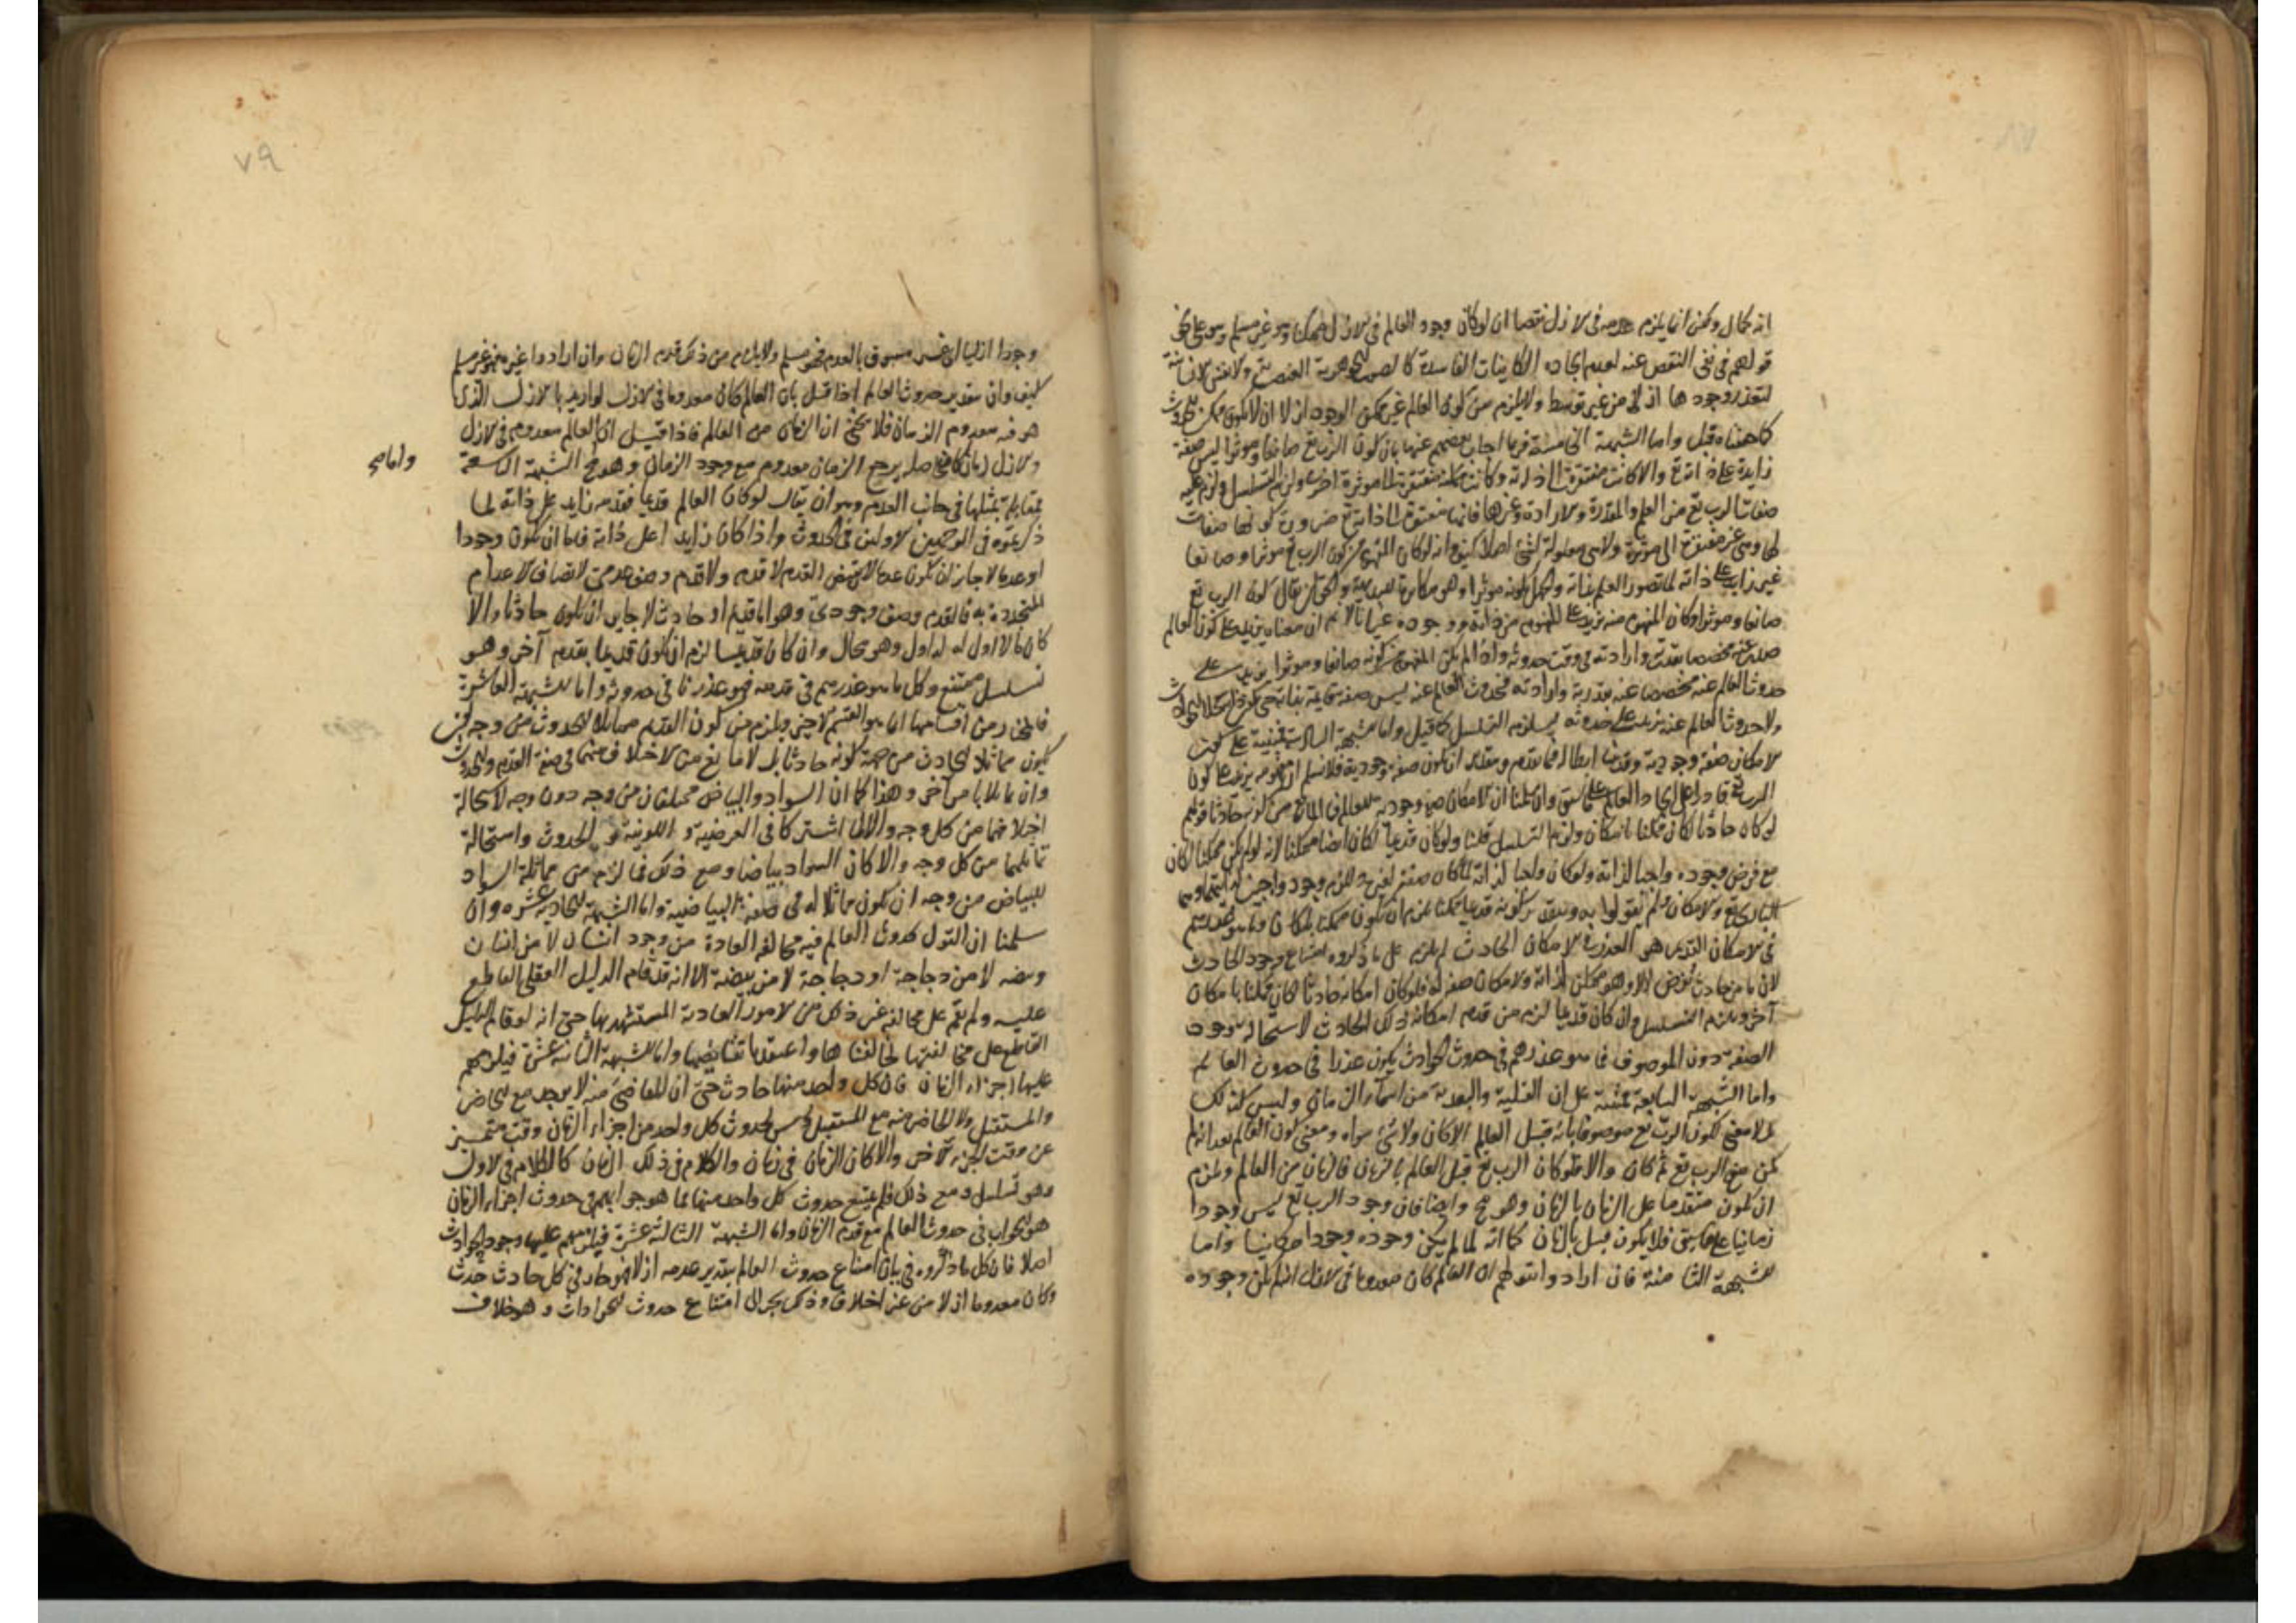 انه محال ولكن انما يلزم عدمه في الازل نقصا ان لو كان وجود العالم في الازل ممكنا وهو غير مسلم وهو على نحو
قولهم في نفي النقص عنه لعدم ايجاده الكاينات الفاسدة كالصور الجوهرية العنصرية والانفس الانسانية
لتعذر وجودها ازلا من غير توسط ولا يلزم من كون العالم غير ممكن الوجود ازلا ان لا يكون ممكن الحدوث
كما حققناه قبل واما الشبهة الخامسة فربما اجاب بعضهم عنها بان كون الرب تع صانعا وموثرا ليس صفة
زايدة على ذاته والا كانت مفتقرة الى ذاته وكانت ممكنة مفتقرة الى موثرية اخرى ولزم التسلسل ولزم عليه
صفات الرب تع من العلم والقدرة والارادة وغيرها فانها مفتقرة الى ذاته تع ضرورة كونها صفات
لها وهي غير مفتقرة الى موثر ولا هي معلولة لشي اصلا كيف وانه لو كان المفهوم من كون الرب تع موثرا وصانعا
غير زايد على ذاته لما تصور العلم بذاته والجهل بكونه موثرا وهو مكابرة للبديهة والحق ان يقال كون الرب تع
صانعا وموثرا وكان المفهوم منه يزيد على المفهوم من ذاته ووجوده غير انا لا نسلم ان معناه يزيد على كون العالم
صدر عنه مخصصا بقدرته وارادته في وقت حدوثه واذا لم يكن المفهوم من كونه صانعا وموثرا يزيد على
حدوث العالم عنه مخصصا عنه بقدرته وارادته فحدوث العالم عنه ليس صفة قايمة بذاته حتى يكون محلا للحوادث
ولا حدوث العالم عنه يزيد على حدوثه ليلزم التسلسل كما قيل واما الشبهة السادسة فمبنية على كون
الامكان صفة وجودية وقد سبق ابطاله فيما تقدم وبتقدير ان يكون صفة وجودية فلا نسلم ان مفهومه يزيد على كون
الرب تع قادرا على ايجاد العالم على ما سبق وان سلمنا ان الامكان صفة وجودية للعالم فما المانع من كونه حادثا قولهم
لو كان حادثا لكان ممكنا بامكان ولزم التسلسل قلنا ولو كان قديما لكان ايضا ممكنا لانه لو لم يكن ممكنا لكان
مع فرض وجوده واجبا لذاته ولو كان واجبا لذاته لما كان صفة لغيره وللزم وجود واجبين لذاتيهما وهما
الباري تع والامكان ولم تقولوا به وبتقدير كونه قديما ممكنا يلزم ان يكون ممكنا بامكان وما هو عذرهم
في الامكان القديم هو العذر في الامكان الحادث ثم يلزم على ما ذكروه امتناع وجود الحادث
لان ما من حادث يفرض الا وهو ممكن لذاته والامكان صفة له فلو كان امكانه حادثا لكان ممكنا بامكان
آخر ويلزم التسلسل وان كان قديما لزم من قدم امكانه قدم ذلك الحادث لاستحالة وجود
الصفة دون الموصوف فما هو عذرهم في حدوث الحوادث يكون عذرا في حدوث العالم
واما الشبهة السابعة فمبنية على ان القبلية والبعدية من اسماء الزمان وليس كذلك
بل لا معنى لكون الرب تع موصوفا بانه قبل العالم الا كان ولا شئ سواه ومعنى كون العالم بعد انه لم
يكن مع الرب تع ثم كان والا فلو كان الرب تع قبل العالم بالزمان فالزمان من العالم ويلزم
ان يكون متقدما على الزمان بالزمان وهو مح وايضا فان وجود الرب تع ليس وجودا
زمانيا على ما سبق فلا يكون قبل بالزمان كما انه لما لم يكن وجوده وجودا مكانيا واما
الشبهة الثامنة فان ارادوا بقولهم ان العالم كان معدوما في الازل انه لم يكن وجوده
وجودا ازليا اي غير مسبوق بالعدم فهو مسلم ولا يلزم من ذلك قدم الزمان وان ارادوا غيره فهو غير مسلم
كيف وان بتقدير حدوث العالم اذا قيل بان العالم كان معدوما في الازل لو اريد بالازل الذي
هو فيه معدوم الزمان فلا يخفى ان الزمان من العالم فاذا قيل ان العالم معدوم في الازل
والازل زمان كان حاصله يرجع الزمان معدوم مع وجود الزمان وهو مح الشبهة التاسعة
واما
فمقابلة بمثلها في جانب القدم وهو ان يقال لو كان العالم قديما فقدمه زايد على ذاته لما
ذكرتموه في الوجهين الاولين في الحدوث واذا كان زايدا على ذاته فاما ان يكون وجودا
او عدما لا جايز ان يكون عدما لان نقيض القدم لا قدم ولا قدم وصف عدمي لاتصاف الاعدام
المتجددة به فالقدم وصف وجودي وهو اما قديم او حادث لا جايز ان يكون حادثا والا
كان ما لا اول له له اول وهو محال وان كان قديما لزم ان يكون قديما بقدم آخر وهو
تسلسل ممتنع وكل ما هو عذرهم في قدمه فهو عذرنا في حدوثه واما الشبهة العاشرة
فالمختار من اقسامها انما هو القسم الاخير ويلزم من كون القدم مماثلا للحدوث من وجه ان
يكون مماثلا للحادث من جهة كونه حادثا بل لا مانع من الاختلاف بينهما في صفة القدم والحدوث
وان تماثلا بامر آخر وهذا كما ان السواد والبياض مختلفان من وجه دون وجه لاستحالة
اختلافهما من كل وجه والا لما اشتركا في العرضية واللونية والحدوث واستحالة
تماثلهما من كل وجه والا كان السواد بياضا ومع ذلك فما لزم من مماثلة السواد
للبياض من وجه ان يكون مماثلا له في صفة البياضية واما الشبهة الحادية عشره وان
سلمنا ان القول بحدوث العالم فيه مخالفة العادة من وجود انسان لا من انسان
وبيضه لا من دجاجة او دجاجة لا من بيضة الا انه قد قام الدليل العقلي القاطع
عليه ولم يقم على مخالفة غير ذلك من الامور العادية المستشهد بها حتى انه لو قام الدليل
القاطع على مخالفتها لخالفناها واعتقدنا نقائضها واما الشبهة الثانية عشرة فيلزمهم
عليها اجزاء الزمان فان كل واحد منها حادث حتى ان الماضي منه لا يوجد مع الحاضر
والمستقبل ولا الحاضر منه مع المستقبل وليس لحدوث كل واحد من اجزاء الزمان وقت متميز
عن وقت الجزء الآخر والا كان الزمان في زمان والكلام في ذلك الزمان كالكلام في الاول
وهو تسلسل ومع ذلك فلم يمتنع حدوث كل واحد منها فما هو جوابهم في حدوث اجزاء الزمان
هو الجواب في حدوث العالم مع قدم الزمان واما الشبهة الثالثة عشرة فيلزمهم عليها وجود الحوادث
اصلا فان كل ما ذكروه في بيان امتناع حدوث العالم بتقدير عدمه ازلا فهو جار في كل حادث حدث
وكان معدوما ازلا من غير اختلاف وذلك يجر الى امتناع حدوث الحوادث وهو خلاف
٧٩